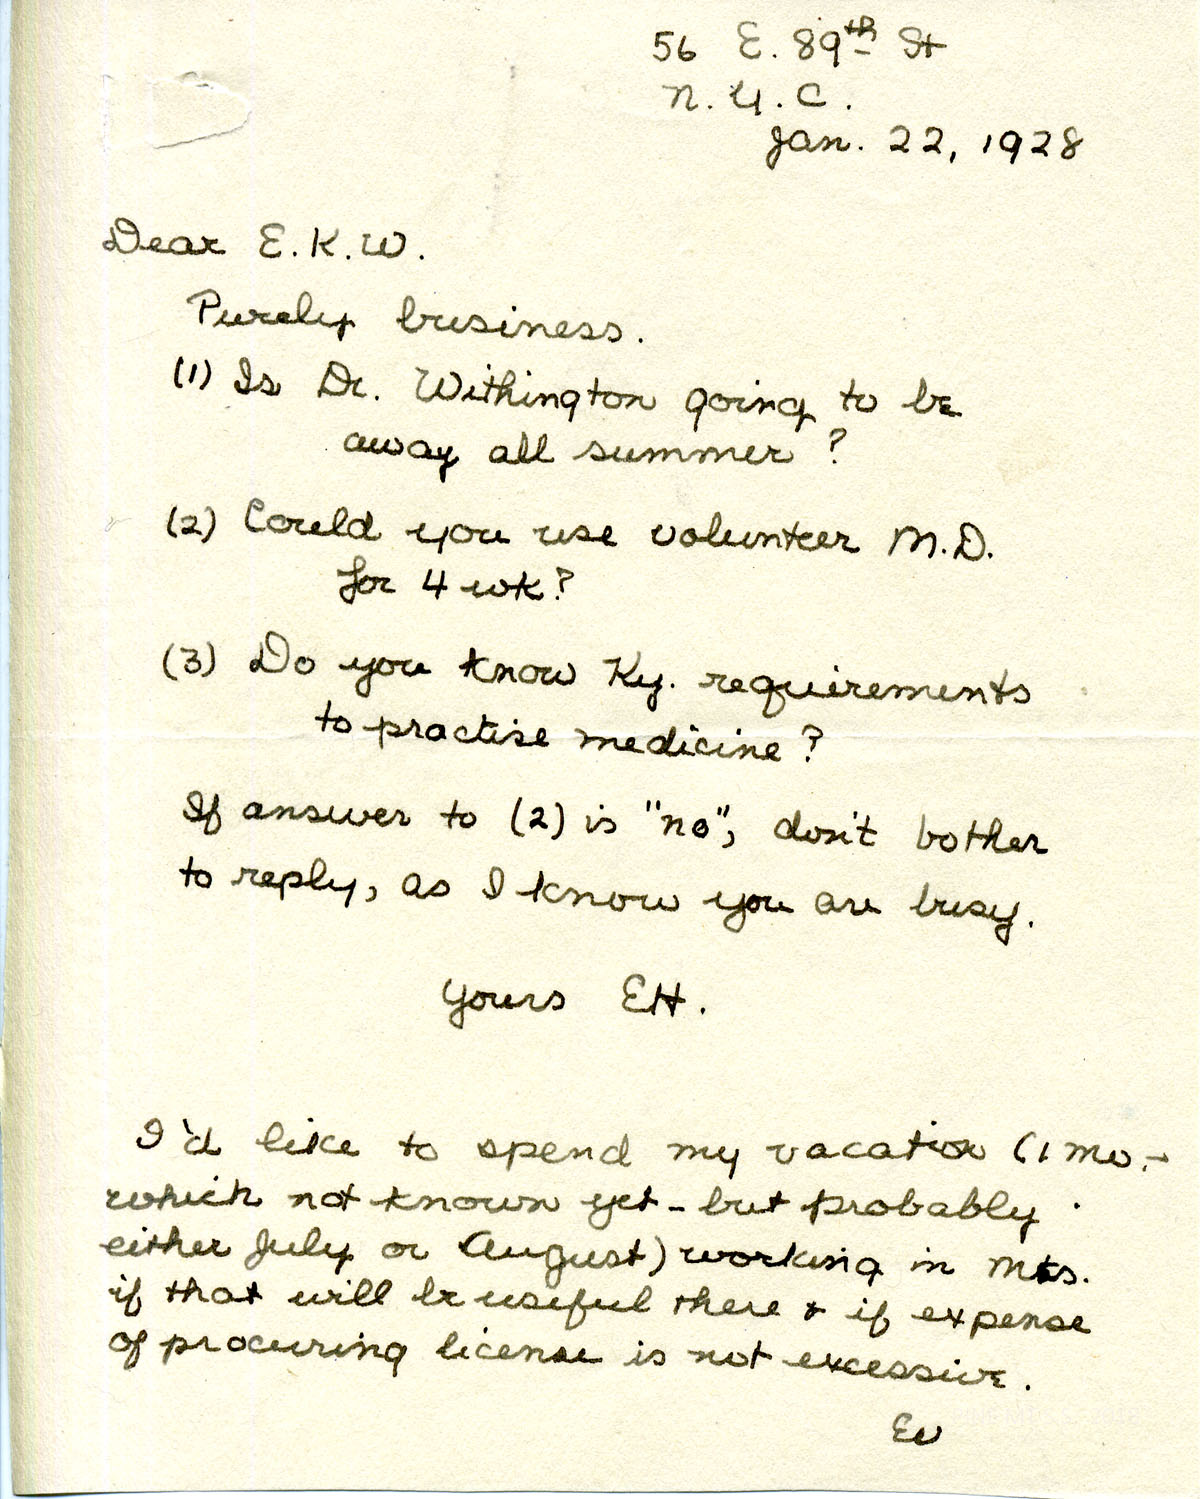 56 E. 89th St
N.Y.C.
Jan. 22, 1928
Dear E.K.W.
Purely business.
(1) Is Dr. Withington going to be
away all summer?
(2) Could you use volunteer M.D.
for 4 wk?
(3) Do you know Ky. requirements
to practise medicine?
If answer to (2) is "no", don't bother
to reply, as I know you are busy.
Yours EH.
I'd like to spend my vacation (1 mo.-
which not known yet - but probably
either July or August) working in Mts.
if that will be useful there & if expense
of procuring license is not excessive.